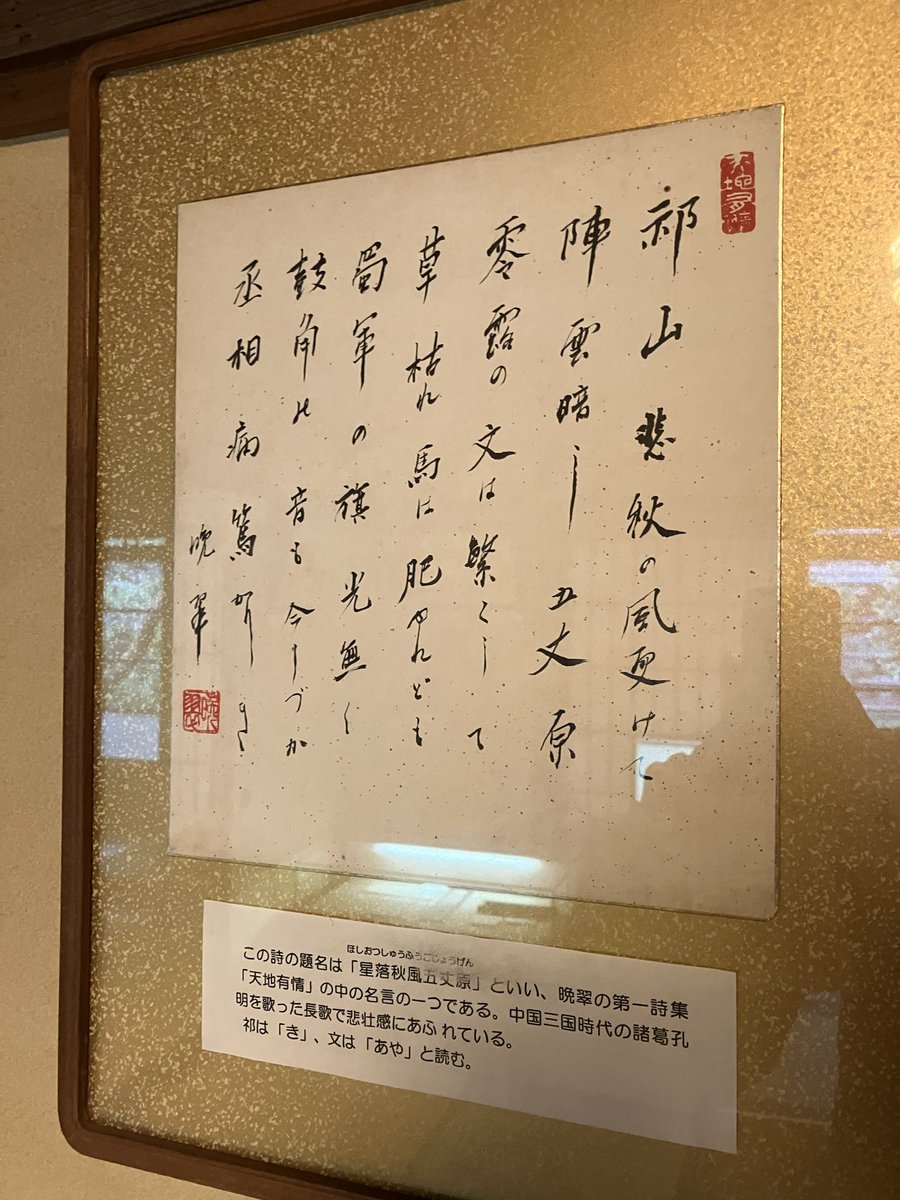 天地有情
祁山悲秋の風更けて
陣雲暗し五丈原
零露の文は繁くして
草枯れ馬は肥ゆれども
蜀軍の旗光無く
鼓角の音も今しづか
丞相病篤かりき
晩翠
晩翠
ほしおつしゅうふうごじょうげん
この詩の題名は「星落秋風五丈原」といい、晩翠の第一詩集
「天地有情」の中の名言の一つである。中国三国時代の諸葛孔
明を歌った長歌で悲壮感にあふれている。
祁は「き」、文は「あや」と読む。